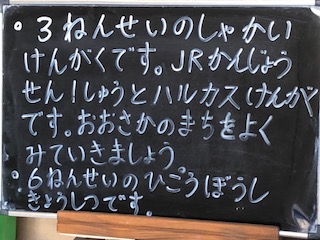 。3ねんせいのしゃかい
けんがくです。JRかんじょう
せん！しゅうとハルカスけんが
です。おおさかのまちをよく
みていきましょう
。6ねんせいのひこうぼうし
きょうしつです。